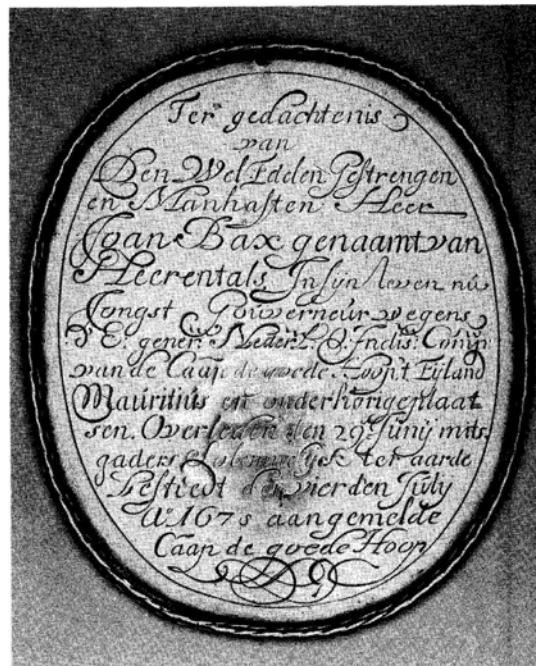 Ter gedachtenis
van
Den Wel Eddlen Gestrengen
en Manhaften Heer
Joan Bax genaamt van
Heerentals, In sijn leven nú
Jongst Gouverneur wegens
d'E. gener: Neder:l: O: Indis: Comp:
van de Caap de goede Hoop't Eijland
Mauritius en onderhorige plaat
sen. Overleden den 29.e Junij mits
gaders ter aarde
Bestiedt den vierden July
A.o 1678 aangemelde
Caap de goede Hoop